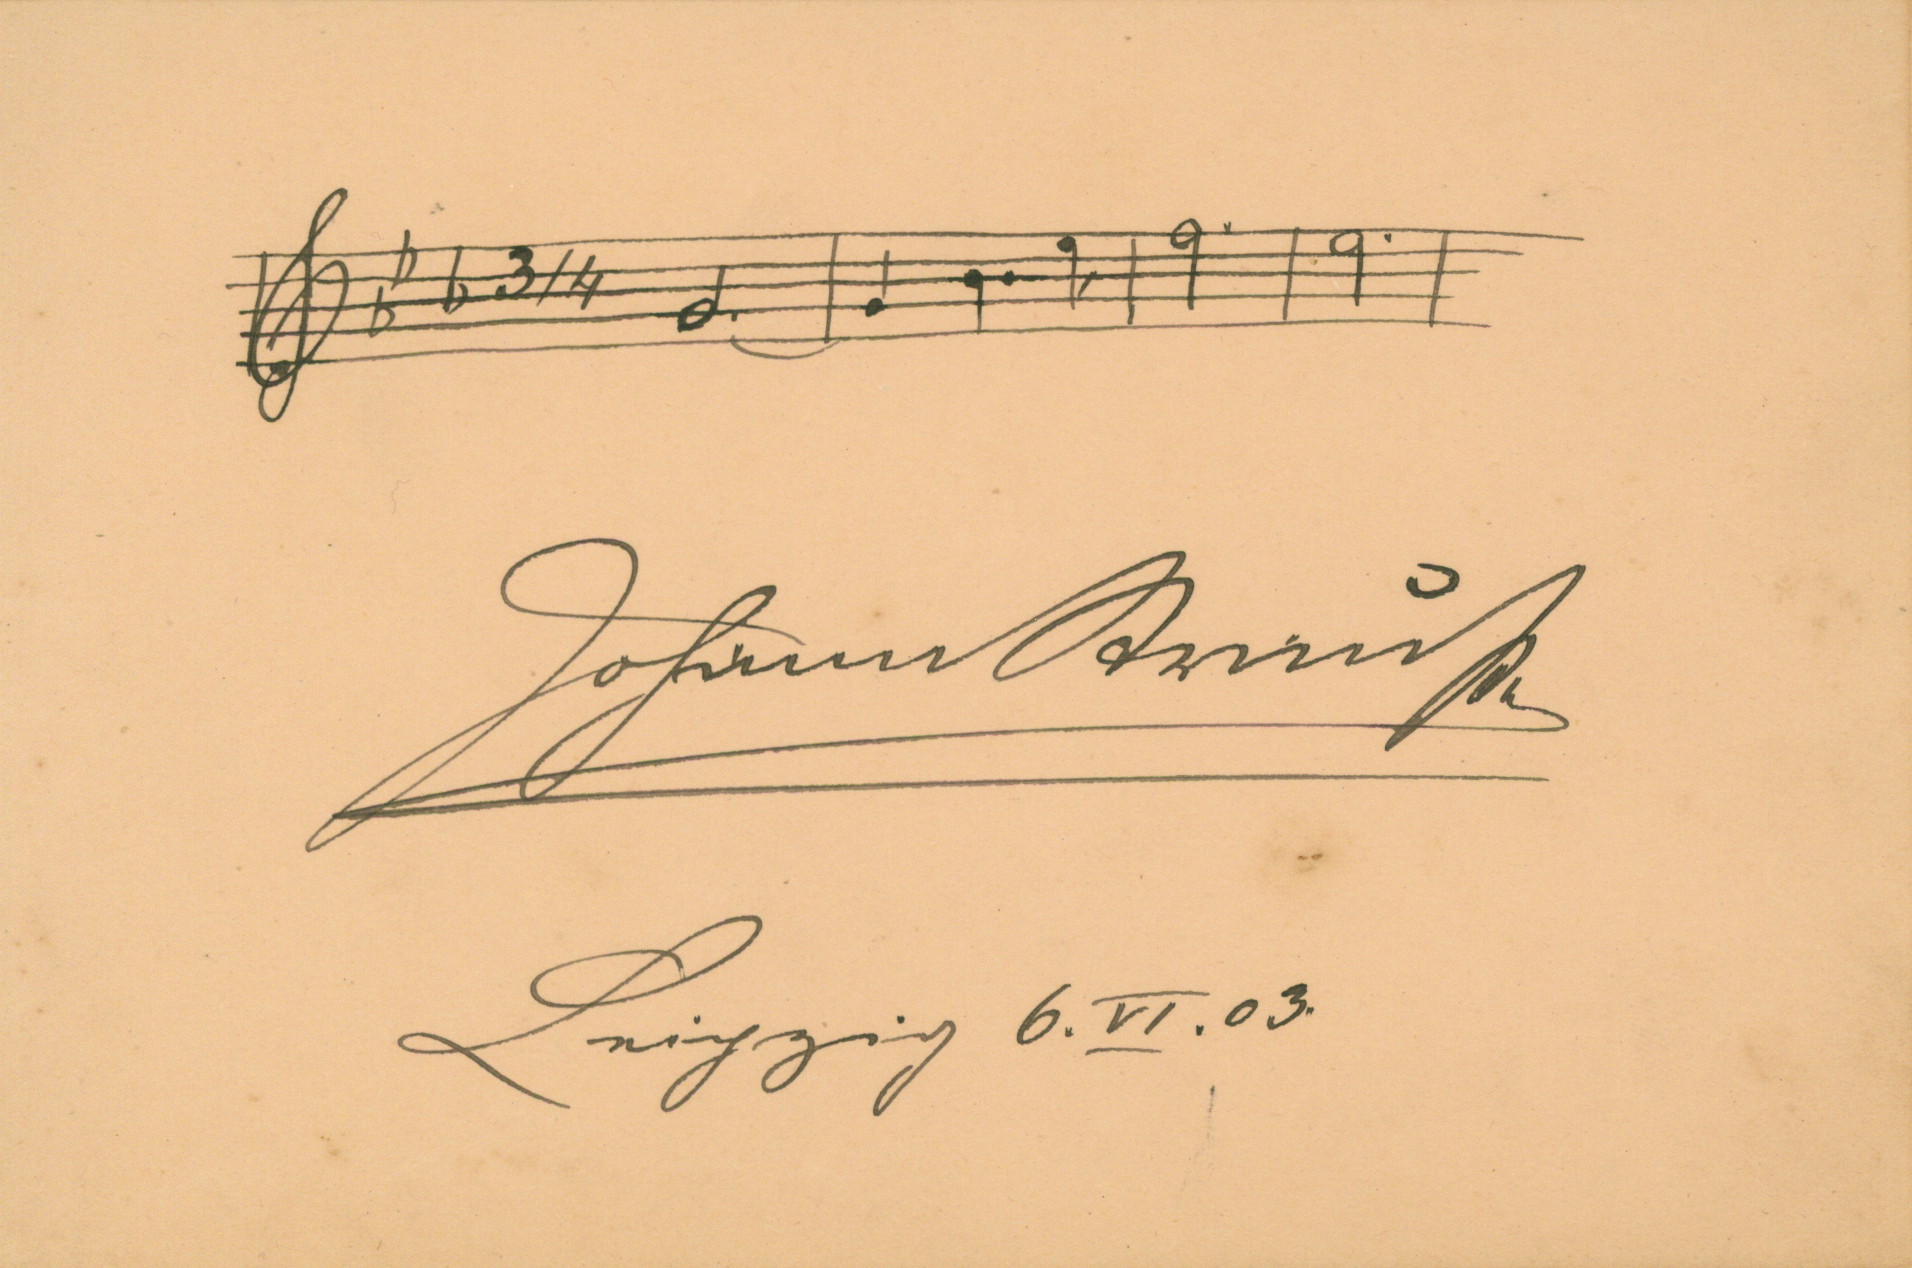 3/4
Johann Strauß
Leipzig 6. VI. 03.